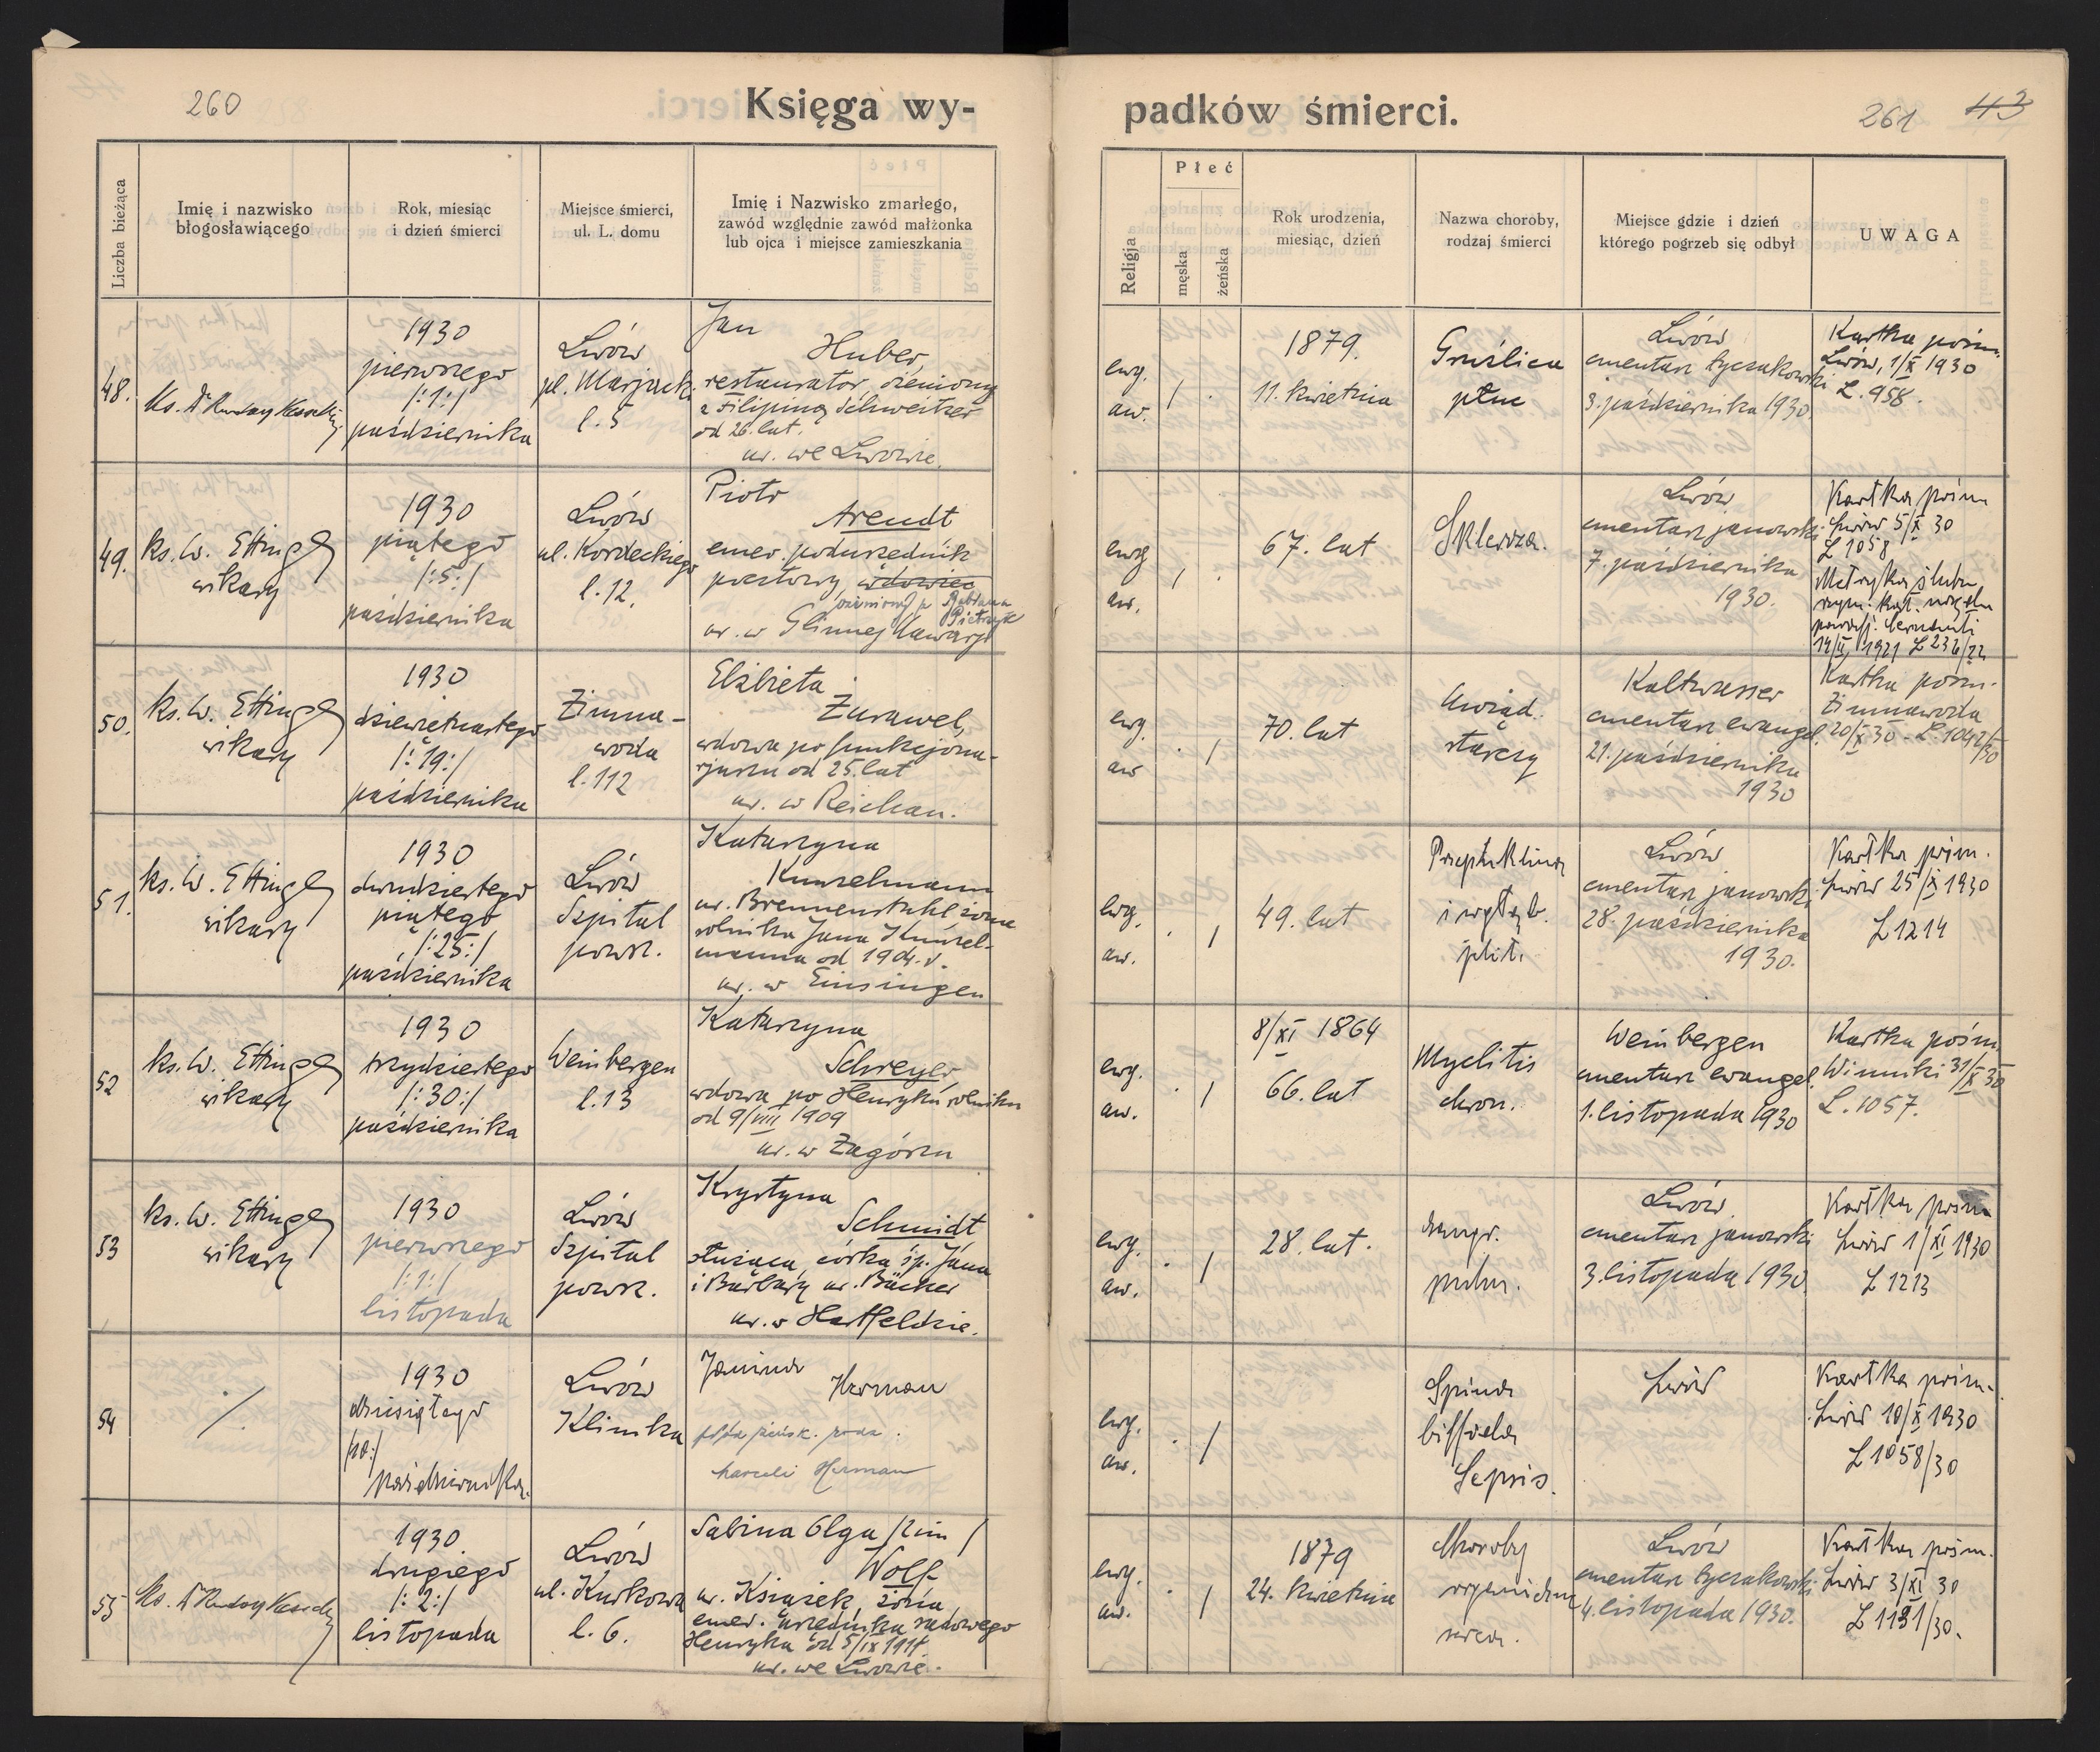 260
Księga wy-
padków śmierci.
261 43
Liczba bieżąca
Imię i nazwisko
błogosławiącego
Rok, miesiąc
i dzień śmierci
Miejsce śmierci,
ul. L. domu
Imię i Nazwisko zmarłego,
zawód względnie zawód małżonka
lub ojca i miejsce zamieszkania
Religja
Płeć
męska
żeńska
Rok urodzenia,
miesiąc, dzień
Nazwa choroby,
rodzaj śmierci
Miejsce gdzie i dzień
którego pogrzeb się odbył
UWAGA
48.
Ks. Dr Rudolf Kesselring
1930
pierwszego
/:1:/
października
Lwów
pl. Marjacki
l. 5
Jan
Huber,
restaurator, żeniony
z Filipiną Schweitzer
od 26. lat.
ur. we Lwowie.
ewg.
aw.
/ .
1879.
11. kwietnia
Gruźlica
płuc
Lwów
cmentarz łyczakowski
3. października 1930.
Kartka pośm.
Lwów, 1/X 1930
L. 958.
49.
ks. W. Ettinger
wikary
1930
piątego
/:5:/
października
Lwów
ul. Kordeckiego
l. 12.
Piotr
Arendt
emer. podurzędnik
pocztowy, wdowiec
ożeniony p. Barbara
Pietrzyk
ur. w Glinnej Nawarji
ewg
aw.
/ .
67. lat
Skleroza.
Lwów
cmentarz janowski
7. października
1930.
Kartka pośm
Lwów 5/X 30
L 1058
Metryka ślubu
rzym. kat. urzędu
paraf.
1921 L 236/22
50.
ks. W. Ettinger
wikary
1930
dziewiętnastego
/:19:/
października
Zimna-
woda
l. 112
Elżbieta
Żurawel,
wdowa po funkcjona-
rjuszu od 25. lat
ur. w Reichau.
ewg.
aw
. /
70. lat
Uwiąd.
starczy
Kaltwasser
cmentarz ewangel.
21. października
1930
Kartka pośm.
Zimnawoda
20/X 30 - L. 1042/30
51.
ks. W. Ettinger
wikary
1930
dwudziestego
piątego
/:25:/
października
Lwów
Szpital
powsz.
Katarzyna
Kunzelmann
ur. Brennenstuhl żona
rolnika Jana Kunzel-
manna od 1904. r.
ur. w Einsingen
ewg.
aw.
. /
49. lat
Przepuklina
Lwów
cmentarz janowski
28. października
1930.
Kartka pośm.
Lwów 25/X 1930
L 1214
52
ks. W. Ettinger
wikary
1930
trzydziestego
/:30:/
października
Weinbergen
l. 13
Katarzyna
Schreyer,
wdowa po Henryku, rolniku
od 9/VIII 1909
ur. w Zagórzu
ewg.
aw.
. /
8/XI 1864
66. lat
Myelitis
chron.
Weinbergen
cmentarz ewangel.
1. listopada 1930
Kartka pośm.
Winniki 31/X 30
L. 1057.
53
ks. W. Ettinger
wikary
1930
pierwszego
/:1:/
listopada
Lwów
Szpital
powsz.
Krystyna
Schmidt
służąca, córka śp. Jana
i Barbary ur. Bächer
ur. w Hartfeldzie.
ewg.
aw.
. /
28. lat.
pulm.
Lwów
cmentarz janowski
3. listopada 1930
Kartka pośm
Lwów 1/XI 1930
L 1213
54
./.
1930
dziesiątego
/10:/
października.
Lwów
Klinika
Janina
Herman
Marceli Herman
ewg.
aw.
. /
Spina
biffida
Sepsis.
Lwów
Kartka pośm.
Lwów 10/X 1930
L 1058/30
55
Ks. Dr Rudolf Kesselring
1930
drugiego
/:2:/
listopada
Lwów
ul. Kurkowa
l. 6.
Sabina Olga /2 im/
Wolf
ur. Książek, żona
emer. urzędnika sądowego
Henryka od 5/IX 1911.
ur. we Lwowie.
ewg.
aw.
. /
1879
24. kwietnia
Choroby
organiczna
serca.
Lwów
cmentarz łyczakowski
4. listopada 1930.
Kartka pośm.
Lwów 3/XI 30
L 1131/30.